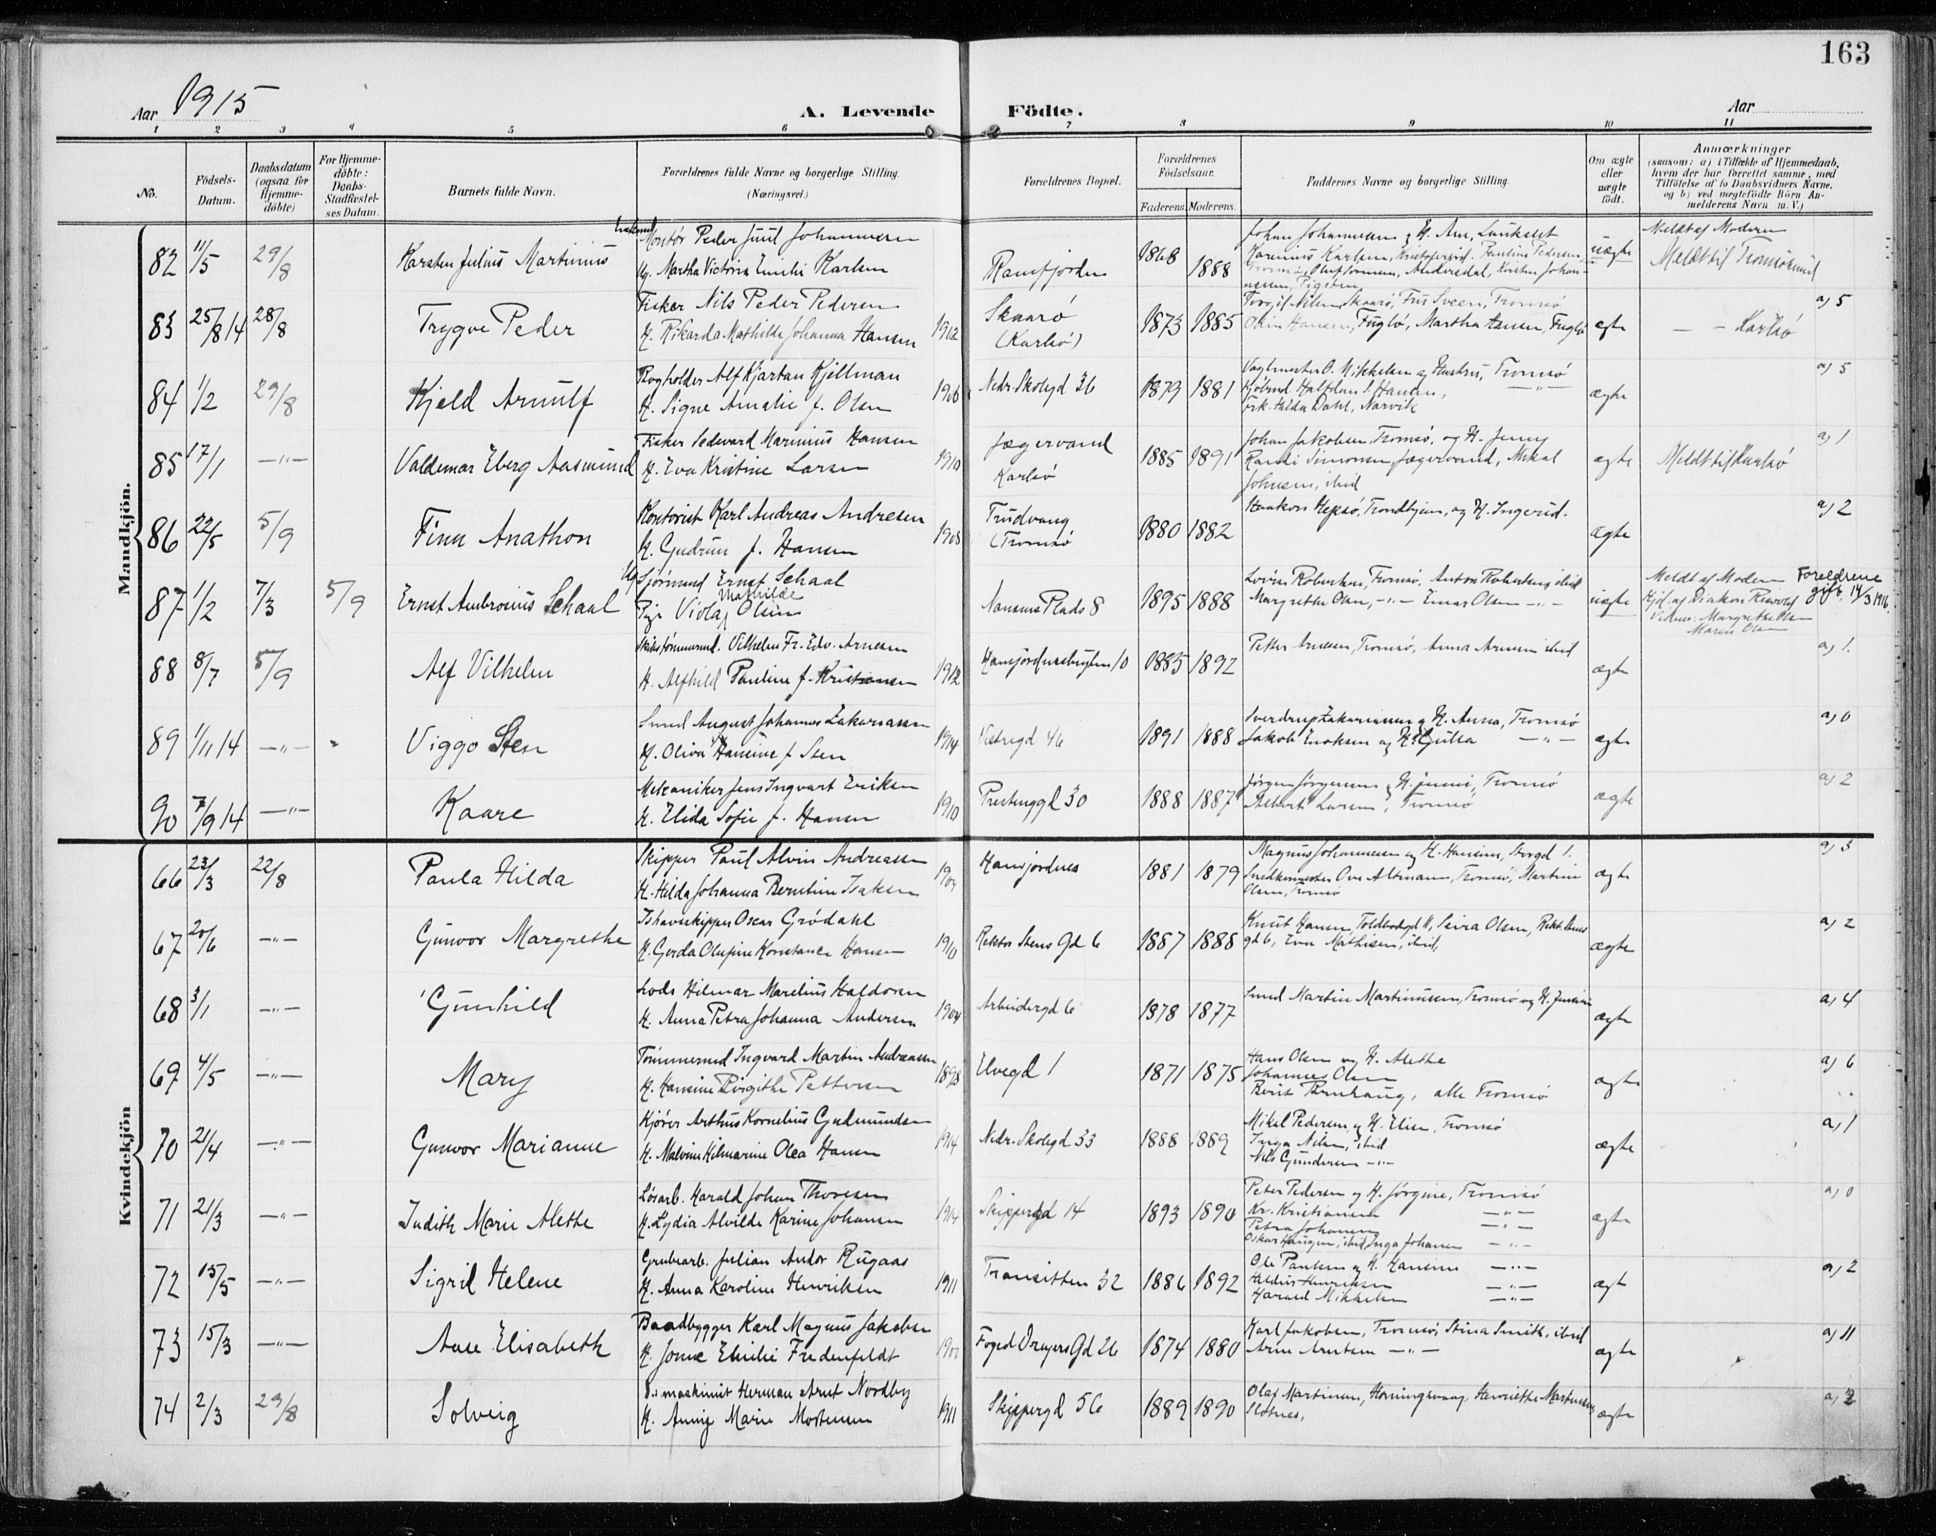 163
Aar 1915
A. Levende Födte.
Aar
1 2 3 4 5 6 7 8 9 10 11
No.
Födsels-Datum.
Daabsdatum (ogsaa for Hjemme-döbte)
For Hjemme-döbte: Daabs-Stadfæstel-ses Datum.
Barnets fulde Navn.
Forældrenes fulde Navne og borgerlige Stilling. (Næringsvei.)
Forældrenes Bopæl.
Forældrenes Födselsaar.
Faderens. Moderens.
Faddernes Navne og borgerlige Stilling.
Om ægte eller uægte födt.
Anmærkninger
(saasom: a) i Tilfælde af Hjemmedaab,
hvem der har forrettet samme, med
Tilföielse af to Daabsvidners Navne,
og b) ved uægtefödte Börn An-
melderens Navn m. V.)
Mandkjön.
82 11/5 29/8 Karsten Julius Martinius
Montör Peder Juul Johannesen
Ug. Martha Victoria Emilie Karlsen
Ramfjorden 1868 1888
uægte
Meldt af Moderen
Meldt til Tromsösund
83 25/8 14 28/8 Trygve Peder
Fisker Nils Peder Pedersen
H. Rikarda Mathilde Johanna Hansen 1912
Skaarö (Karlsö) 1873 1885
Hansen, Fuglö, Martha Hansen, Fuglö
ægte — — Karlsö a) 5
84 1/2 29/8 Kjeld Arnulf
Alf Kjartan Kjellman
H. Signe Amalie f. Olsen 1906
Nedr. Skolegd 36 1879 1881
O. Mikkelsen og Hustru, Tromsö
Kjöbmd Halfdan S. Hansen, —"—
Frk. Hilda Dahl, Narvik
ægte a) 5
85 17/1 —"— Valdemar Eberg Aasmund
Fisker Sedevard Marinius Hansen
H. Eva Kristine Larsen 1910
Jægervand Karlsö 1885 1891
Johan Jakobsen, Tromsö, og H. Jenny
Simonsen, Jægervand, Mikal
Johnsen, ibid
ægte Meldt til Karlsö a) 1
86 22/5 5/9 Finn Anathon
Kontorist Karl Andreas Andresen
H. Gudrun f. Hansen 1908
Trudvang (Tromsö 1880 1882
Haakon Hepsö, Trondhjem, og H. Ingerid.
ægte a) 2
87 1/2 7/3 5/9 Ernst Ambrosius Schaal
Ug. Sjömand Ernst Schaal
Pige Viola Mathilde Olsen
Nansens Plads 8 1895 1888
Lovise Robertsen, Tromsö, Anton Robertsen ibid
Margrethe Olsen, —"— Einar Olsen —"—
uægte
Meldt af Moderen
Hjd. af Diakon
Vidner: Margrethe Olsen
Marie Olsen
Foreldrene gift 14/3 1916.
88 8/7 5/9 Alf Vilhelm
Skibstömmermd. Vilhelm Fr. Edv. Arnesen
H. Alfhild Pauline f. Kristiansen 1912
Hansjordnesbugten 10 1885 1892
Petter Arnesen, Tromsö, Anna Arnesen ibid
ægte a) 1.
89 1/11 14 —"— Viggo Sten
Smed August Johannes Zakariassen
H. Oliva Hansine f. Sten 1914
Vestregd 46 1891 1888
Sverdrup Zakariassen og H. Anna, Tromsö
Jakob Eriksen og H. Julla —"—
ægte a) 0
90 7/9 14 —"— Kaare
Mekaniker Jens Ingvart Eriksen
H. Elida Sofie f. Hansen 1910
Prestenggd 30 1888 1887
Jörgen Jörgensen og H. Jenni, Tromsö
Albert Larsen, Tromsö
ægte a) 2
Kvindekjön
66 23/3 22/8 Paula Hilda
Skipper Paul Alvin Andreassen
H. Hilda Johanna Berntine Isaksen
Hansjordnes 1881 1879
Magnus Johannessen og H. Hansine, Storgd 1.
Snedkermester Ove Altmann, Tromsö, Martine
Olsen, Tromsö
ægte a) 3
67 20/6 —"— Gunvor Margrethe
Ishavsskipper Oscar Grödahl
H. Gerda Olufine Konstance Hansen 1910
Rektor Stens Gd 6 1887 1888
Knut Hansen, Toldbodgd 11, Peira Olsen, Rekt. Stens
gd 6, Eva Mathisen, ibid,
ægte a) 2
68 3/1 —"— Gunhild
Lods Hilmar Marelius Haldorsen
H. Anna Petra Johanna Andersen 1904
Arbeidergd 6 1878 1877
Smed Martin Martinussen, Tromsö og H.
ægte a) 4
69 4/5 —"— Mary
Tömmermd Ingvard Martin Andreassen
H. Hansine Birgithe Pettersen 1898
Elvegd 1 1871 1875
Hans Olsen og H. Alethe
Johannes Olsen
Berit Bernhaug, alle Tromsö
ægte a) 6
70 21/4 —"— Gunvor Marianne
Kjörer Arthur Kornelius Gudmundsen
H. Malvine Hilmarine Olea Hansen 1914
Nedr. Skolegd 33 1888 1889
Mikel Pedersen og H. Elise, Tromsö
Inga Nilsen, ibid
Nils Gundersen —"—
ægte a) 1
71 21/3 —"— Judith Marie Alethe
Lösarb. Harald Johan Thoresen
H. Lydia Alvilde Karine Johansen 1914
Skippergd 14 1893 1890
Peter Pedersen og H. Jörgine, Tromsö
Kr. Kristiansen —"—
Petra Johansen —"—
Oskar Haugen, ibid, Inga Johansen —"—
ægte a) 0
72 15/5 —"— Sigrid Helene
Grubearb. Julian Andor Rugaas
H. Anna Karoline Henriksen 1911
Transitten 32 1886 1892
Ole Paulsen og H. Hansine —"—
Henriksen —"—
Harald Mikkelsen —"—
ægt a) 2
73 15/3 —"— Aase Elisabeth
Baadbygger Karl Magnus Jakobsen
H. Emilie Fredenfeldt
Foged Dreyers Gd 26 1874 1880
Karl Jakobsen, Tromsö, Stina Smith, ibid
Arne Arntsen —"—
ægte a) 11
74 2/3 29/8 Solveig
maskinist Herman Arnt Nordby
H. Anny Marie Mortensen 1911
Skippergd 56 1889 1890
Olaf Martinsen, Honningsvaag, Henriette Martinsen
Slotnes,
ægte a) 2